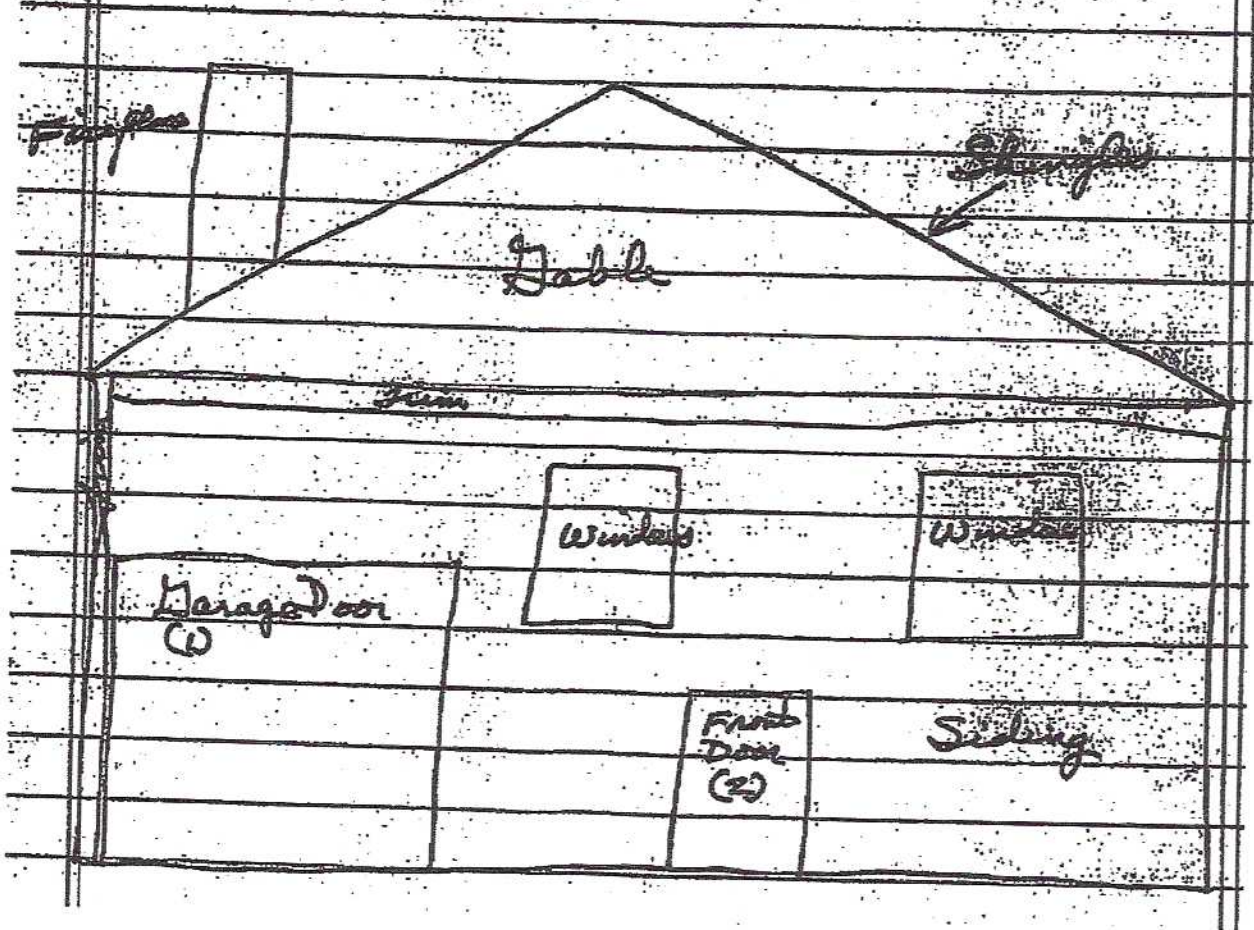 Shingles
Gable
Trim
Windows
Window
Garage Door
(1)
Front
Door
(2)
Siding